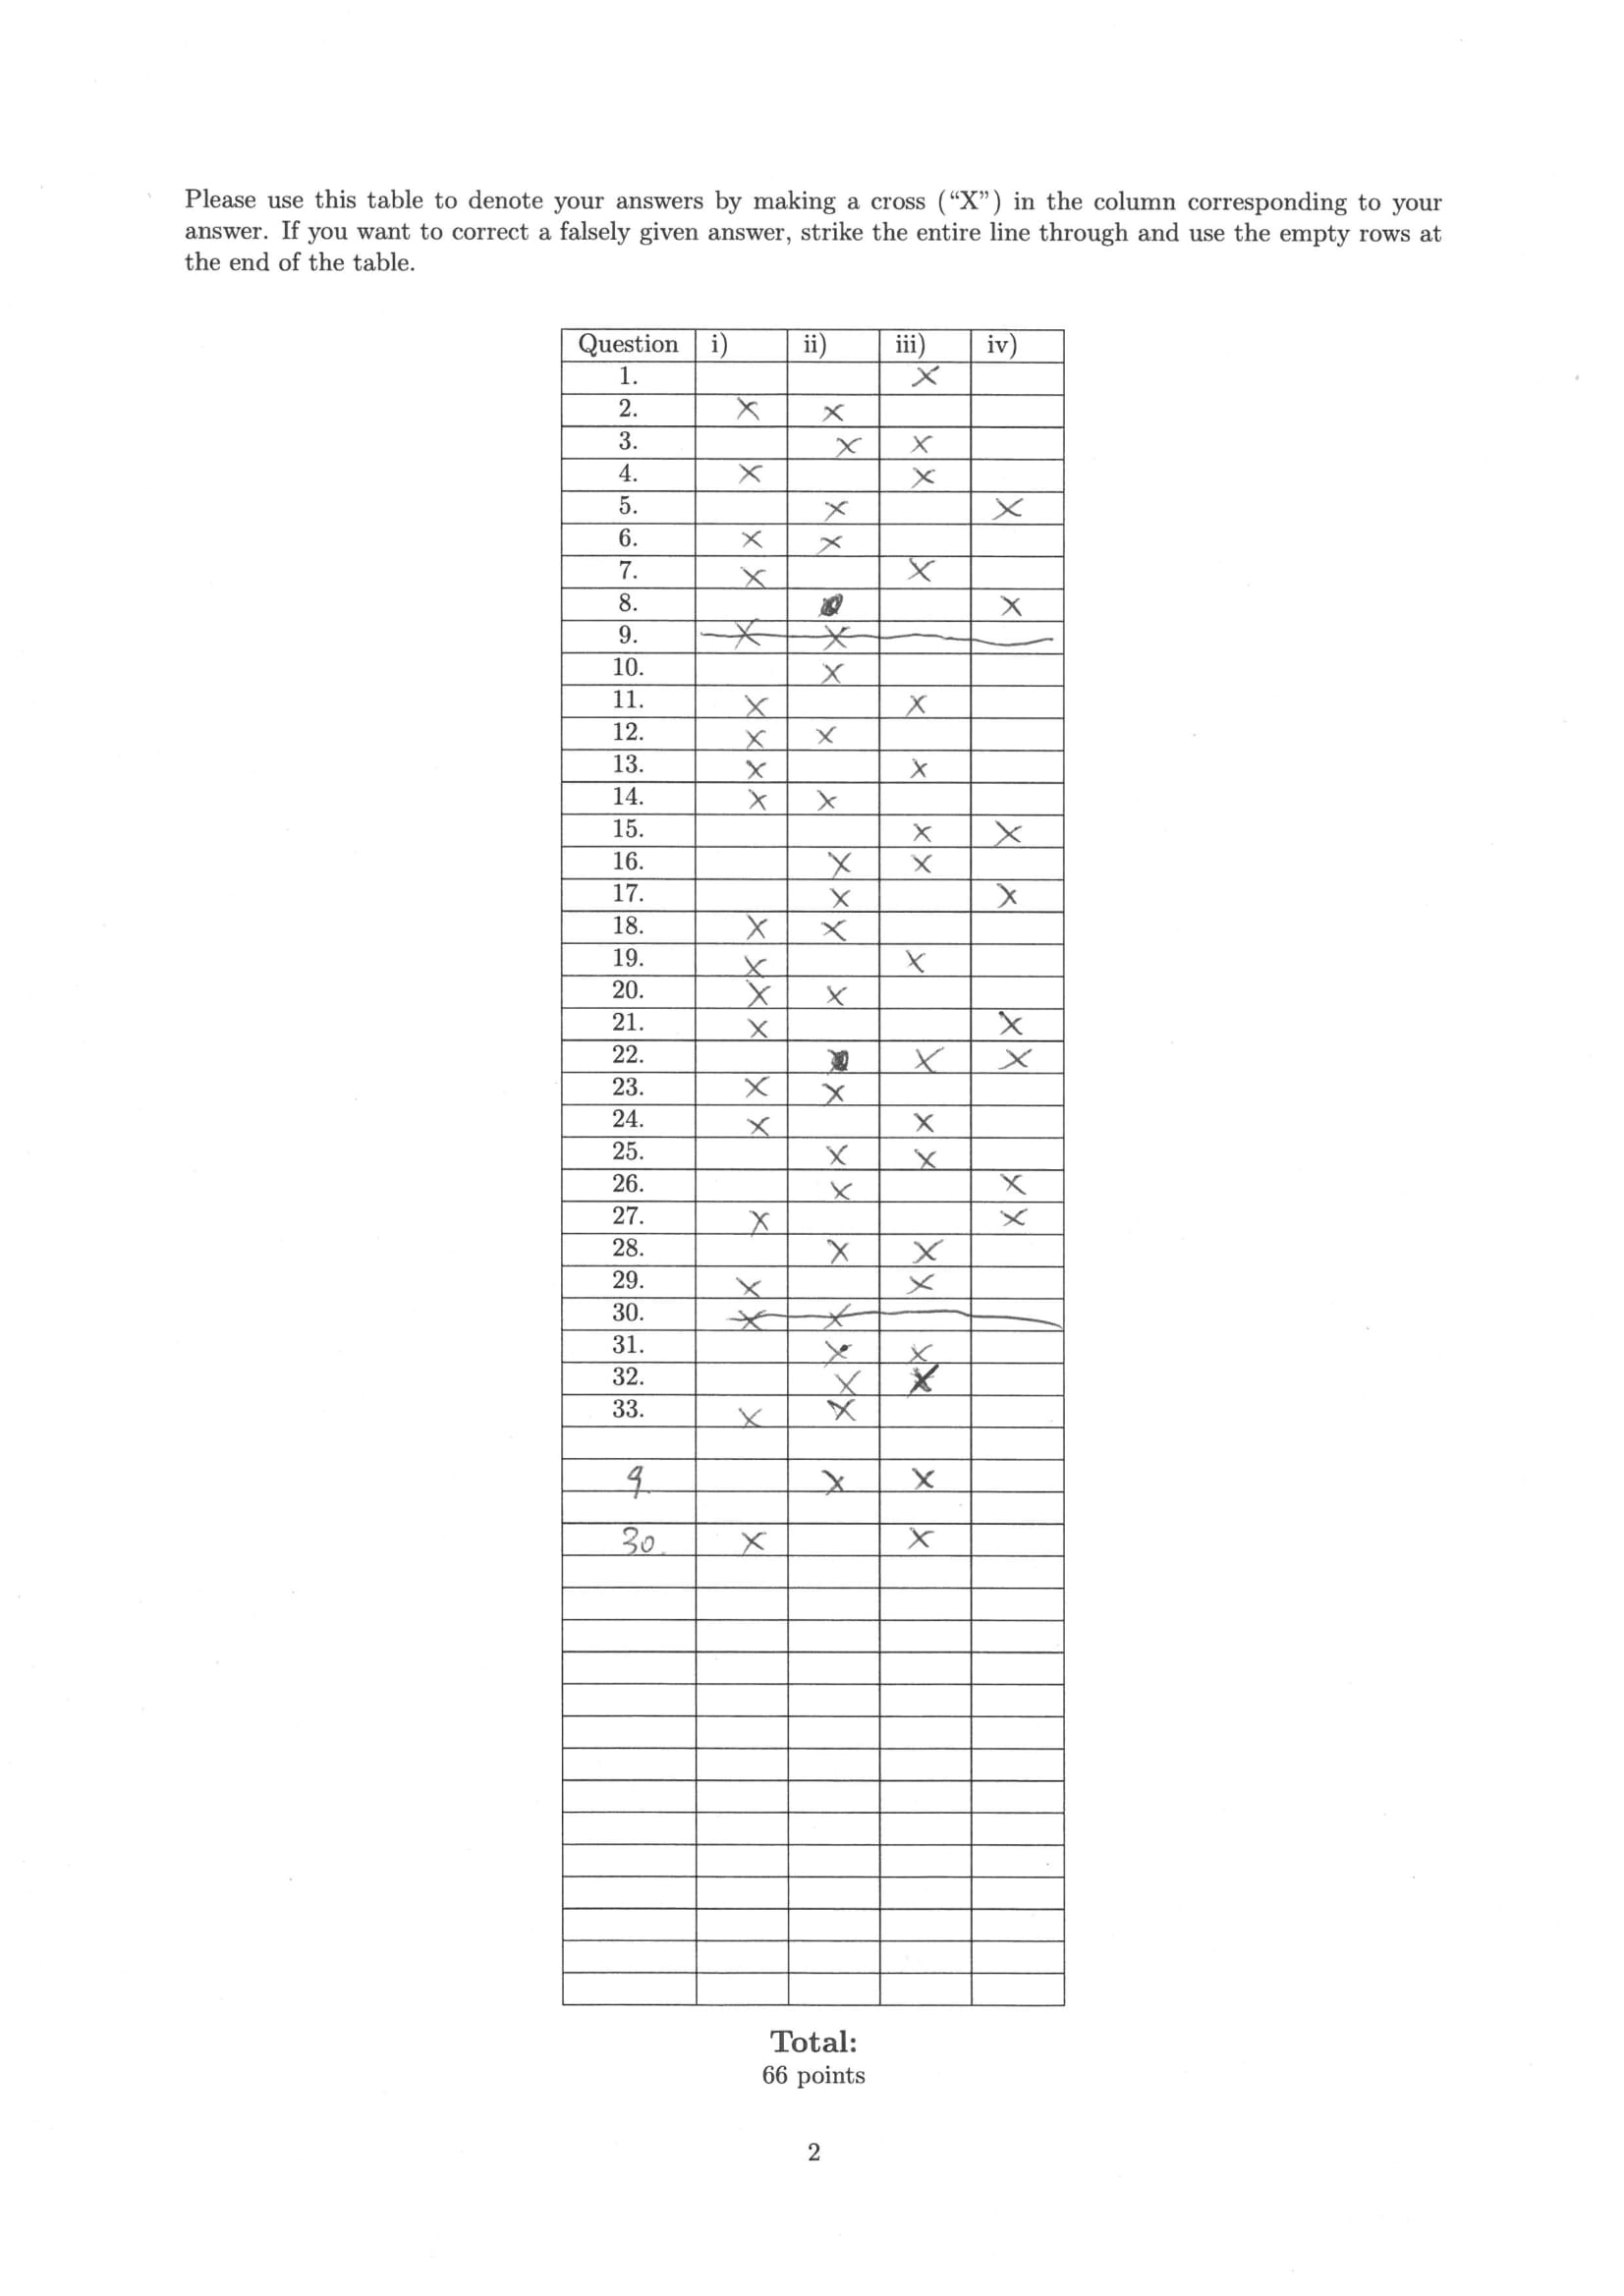 Please use this table to denote your answers by making a cross (“X”) in the column corresponding to your
answer. If you want to correct a falsely given answer, strike the entire line through and use the empty rows at
the end of the table.
Question i) ii) iii) iv)
1. X
2. X X
3. X X
4. X X
5. X X
6. X X
7. X X
8. X
9. X X
10. X
11. X X
12. X X
13. X X
14. X X
15. X X
16. X X
17. X X
18. X X
19. X X
20. X X
21. X X
22. X X
23. X X
24. X X
25. X X
26. X X
27. X X
28. X X
29. X X
30. X X
31. X X
32. X X
33. X X
9. X X
30. X X
Total:
66 points
2